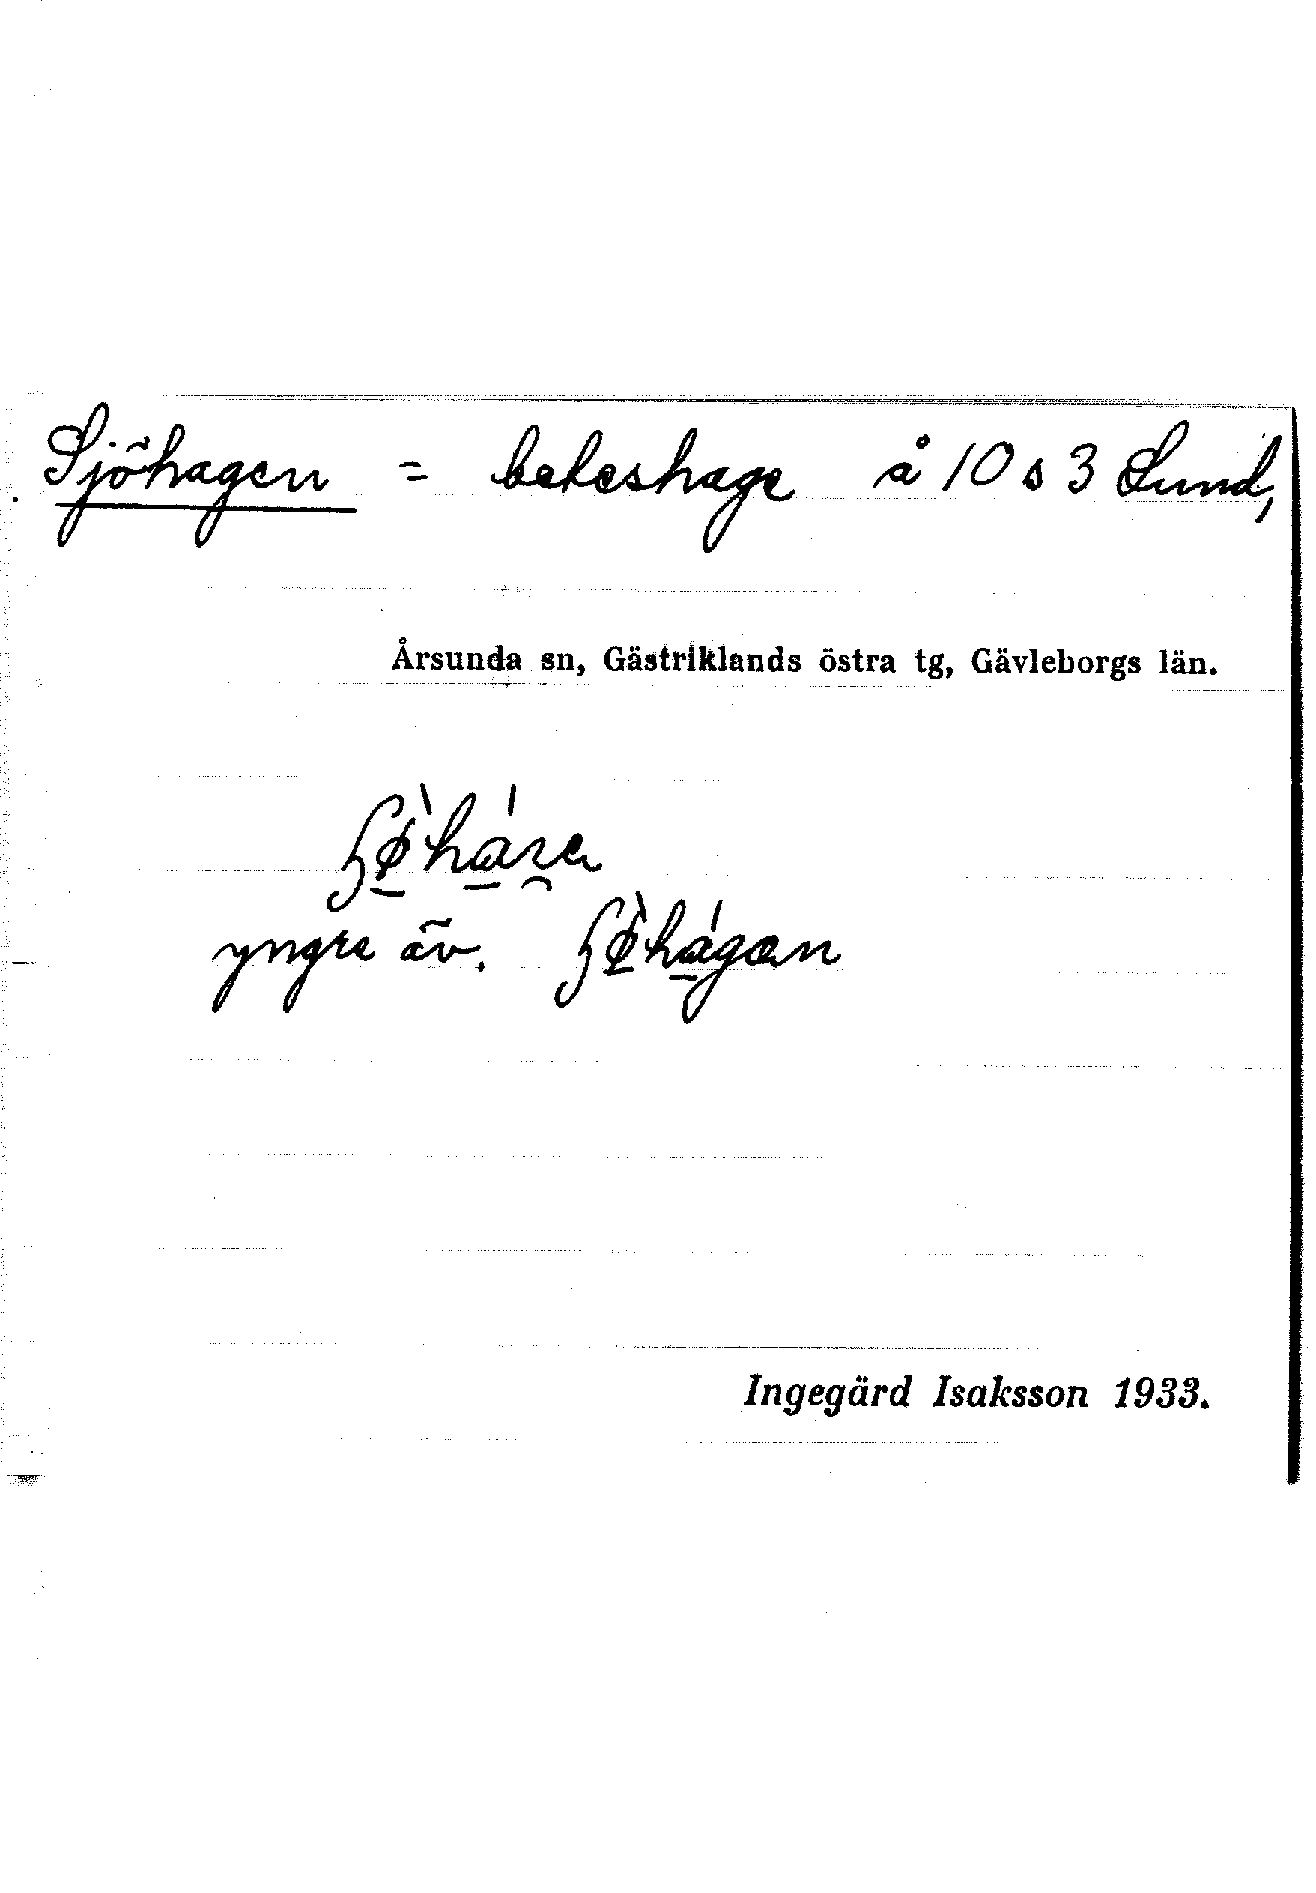 Sjöhagen = beteshage å 10 s 3 Lund,
Årsunda sn, Gästriklands östra tg, Gävleborgs län.
yngre äv.
Ingegärd Isaksson 1933.